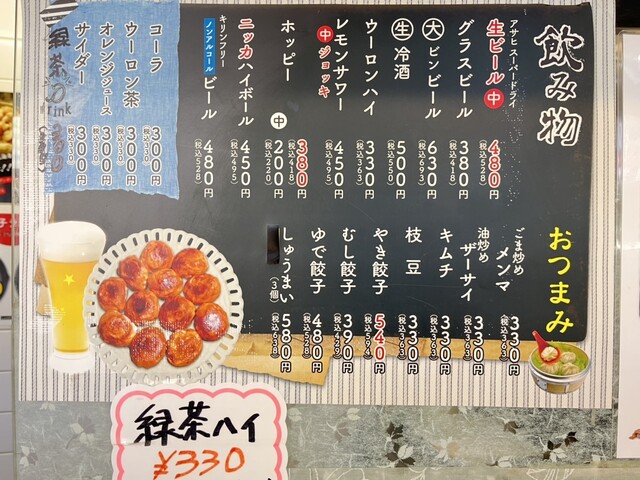 飲み物
アサヒスーパードライ
生ビール中 480円
(税込528)
グラスビール 380円
(税込418)
大ビンビール 630円
(税込693)
生冷酒 500円
(税込550)
ウーロンハイ 330円
(税込363)
レモンサワー 450円
(税込495)
中ジョッキ 380円
(税込418)
ホッピー 中 200円
(税込220)
ニッカハイボール 450円
(税込495)
キリンフリー
ノンアルコール ビール 480円
(税込528)
コーラ 300円
(税込330)
ウーロン茶 300円
(税込330)
オレンジジュース 300円
(税込330)
サイダー 300円
(税込330)
緑茶
rink
おつまみ
ごま炒め
メンマ 330円
(税込363)
油炒め
ザーサイ 330円
(税込363)
キムチ 330円
(税込363)
枝豆 330円
(税込363)
やき餃子 540円
(税込594)
むし餃子
(税込429)
ゆで餃子 480円
(税込528)
しゅうまい(3個) 580円
(税込638)
緑茶ハイ
¥330